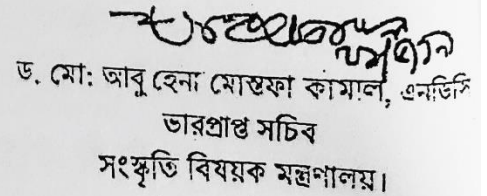 ড. মো: আবু হেনা মোস্তফা কামাল, এনডিসি
ভারপ্রাপ্ত সচিব
সংস্কৃতি বিষয়ক মন্ত্রণালয়।